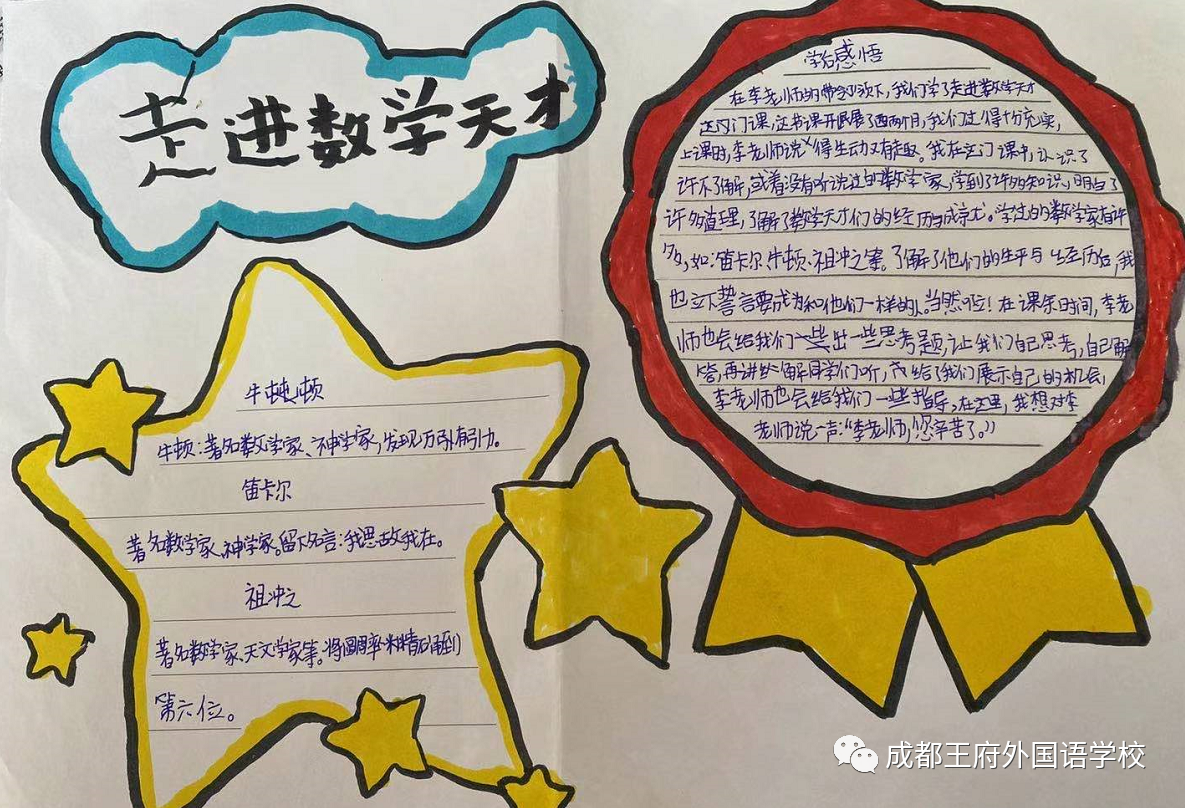 走进数学天才
牛顿
牛顿:著名数学家、神学家,发现万有引力。
笛卡尔
著名数学家、神学家。留下名言:我思故我在。
祖冲之
著名数学家、天文学家等。将圆周率精确到
第六位。
学后感悟
在李老师的带领下,我们学了走进数学天才
这门课,这书课开展了两个月,我们过得十分充实,
上课时,李老师说得生动又有趣。我在这门课中,认识了
许不了解,或着没有听说过的数学家,学到了许多知识,明白了
许多道理,了解了数学天才们的经历与成就。学过的数学家有许
多,如:笛卡尔、牛顿、祖冲之等。了解了他们的生平与经历后,我
也立下誓言要成为和他们一样的人。当然啦!在课余时间,李老
师也会给我们出一些思考题,让我们自己思考,自己解
答,再讲解同学们听,给了我们展示自己的机会,
李老师也会给我们一些指导,在这里,我想对李
老师说一声:“李老师,您辛苦了。”
成都王府外国语学校